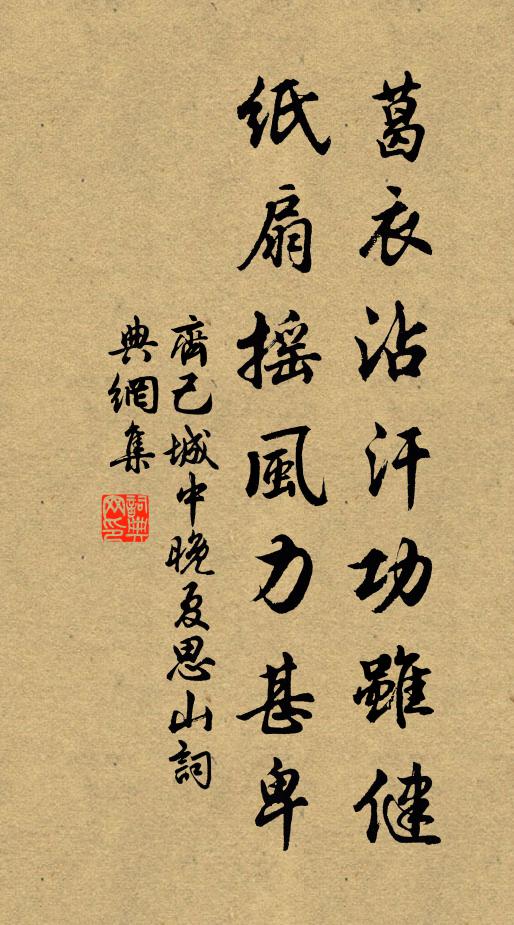 葛衣沾汗功雖健
紙扇搖風力甚卑
齊己城中晚夏思山詞
典網集
詞典網印